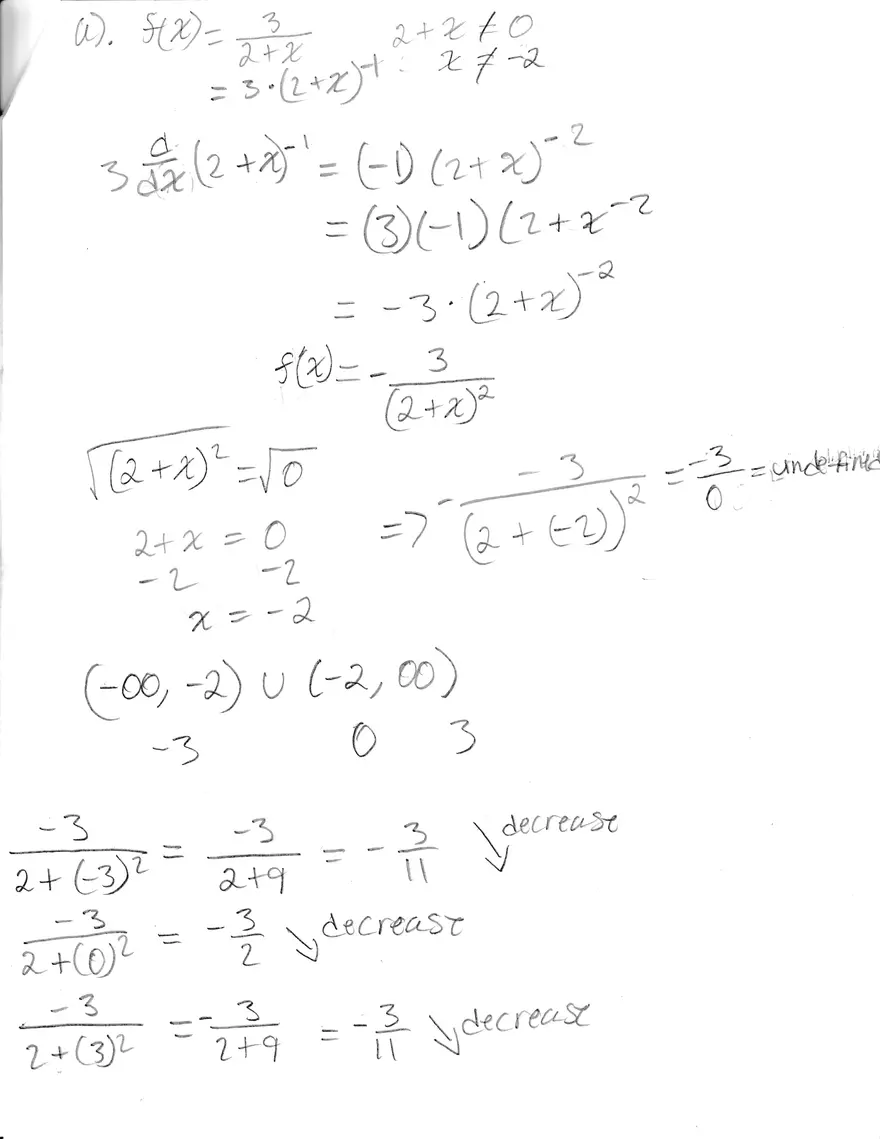 a). f(x) = 3/(2+x)    2+x ≠ 0
= 3·(2+x)^-1 :    x ≠ -2
3 d/dx (2+x)^-1 = (-1) (2+x)^-2
= (3)(-1) (2+x^-2
= -3·(2+x)^-2
f(x) = - 3/(2+x)^2
√(2+x)^2 = √0    => - -3/(2+(-2))^2 = -3/0 = undefined
2+x = 0
-2    -2
x = -2
(-∞, -2) ∪ (-2, ∞)
-3    0    3
-3/(2+(-3)^2) = -3/(2+9) = - 3/11 ↘ decrease
-3/(2+(0)^2) = - 3/2 ↘ decrease
-3/(2+(3)^2) = - 3/(2+9) = - 3/11 ↘ decrease